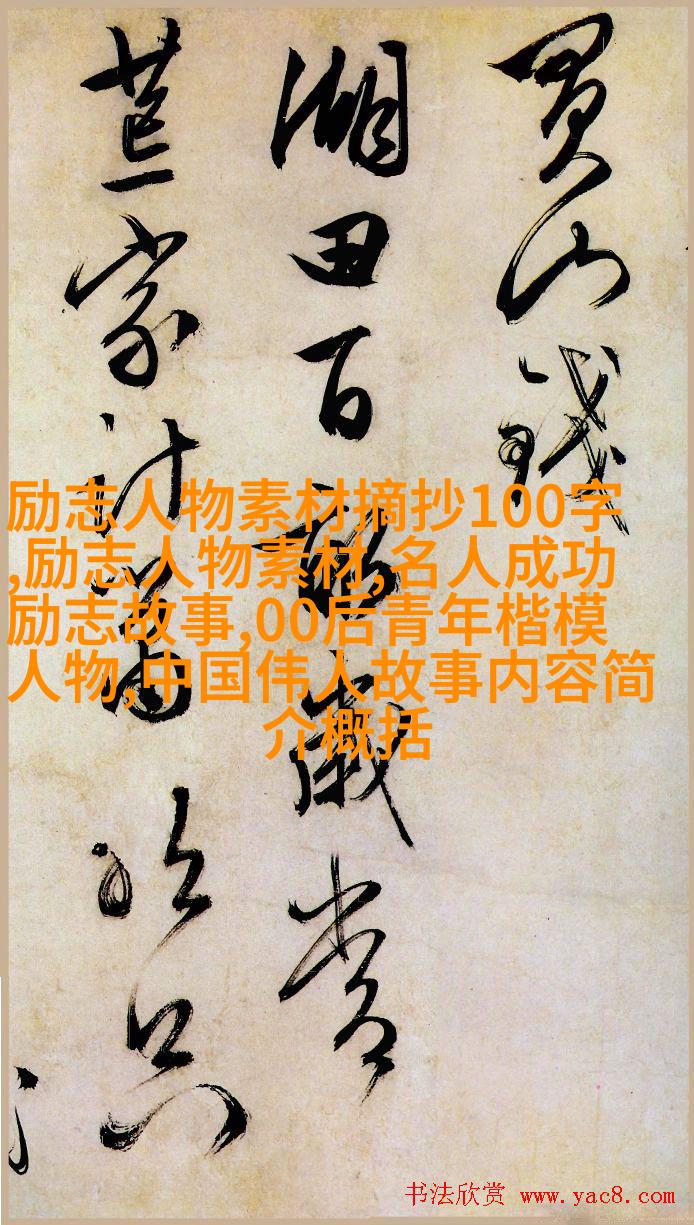 買山錢
湖田百歲常
荒家計只
励志人物素材摘抄100字
,励志人物素材,名人成功
励志故事,00后青年楷模
人物,中国伟人故事内容简
介概括
书法欣赏 www.yac8.com